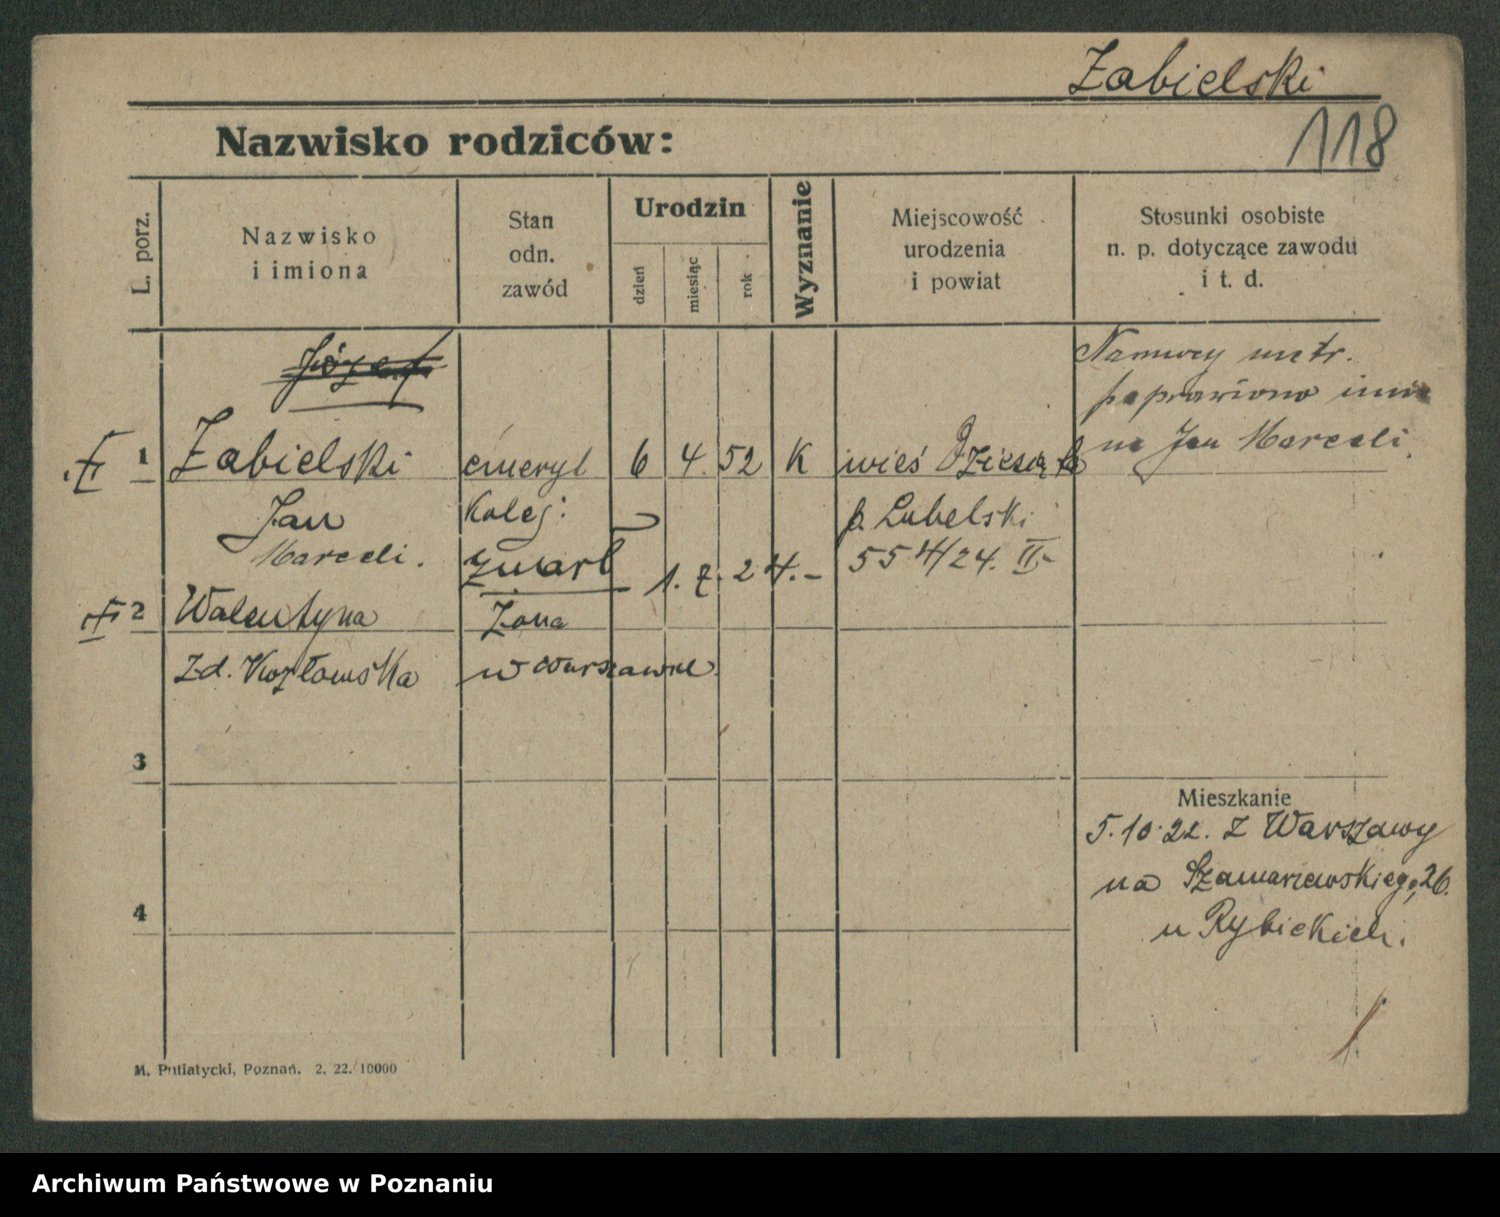 Zabielski
118
Nazwisko rodziców:
L. porz.
Nazwisko
i imiona
Stan
odn.
zawód
Urodzin
dzień
miesiąc
rok
Wyznanie
Miejscowość
urodzenia
i powiat
Stosunki osobiste
n. p. dotyczące zawodu
i t. d.
Józef
metr.
poprawiono imię
na Jan Marceli.
1 Zabielski emeryt 6 4. 52 K wieś
Jan kolej: p. Lubelski
Marceli. zmarł 1. 7. 24.- 55 /24. II-
2 Walentyna żona
zd. Kozłowska w Warszawie.
3
Mieszkanie
5.10.22. z Warszawy
na Szamarzewskiego 26.
u Rybickich.
4
M. Putiatycki, Poznań. 2. 22. 10000
Archiwum Państwowe w Poznaniu